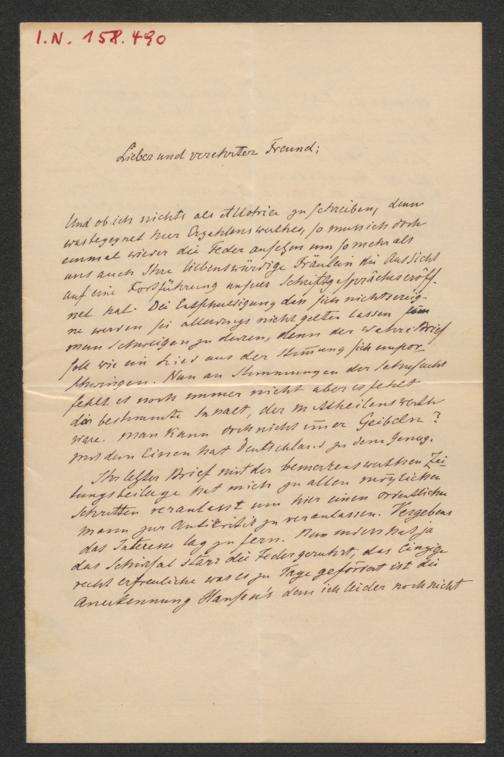 I.N. 158.490
Lieber und verehrter Freund;
Und ob ich nichts als Allotria zu schreiben, denn
was begegnet hier Erzählenswerthes, so muss ich doch
einmal wieder die Feder ansetzen um so mehr als
uns auch Ihre liebenswürdige Fräulein die Aussicht
auf eine Fortführung unseres Schriftgespräches eröff-
net hat. Die Entschuldigung dass sich nichts ereig-
ne werden sie allerdings nicht gelten lassen
mein Schweigen zu denn der wahre Brief
soll wie ein Lied aus der Stimmung sich empor
schwingen. Nun an Stimmungen der Sehnsucht
fehlt es noch immer nicht aber es fehlt
der bestimmte Inhalt, der mittheilenswerth
wäre. Man kann doch nicht immer Geibeln?
Mit dem Einen hat Deutschland ja dem genug.
Ihr letzter Brief mit der bemerkenswerthen Zei-
tungsbeilage hat mich zu allen möglichen
Schritten veranlasst um hier einen ordentlichen
Mann zur Antikritik zu veranlassen. Vergebens
das Interesse lag zu fern. Nun anders hat ja
das Schicksal die Feder geführt, das Einzige
recht erfreuliche was es zu Tage gefördert ist die
Anerkennung Hansen's dem ich leider noch nicht